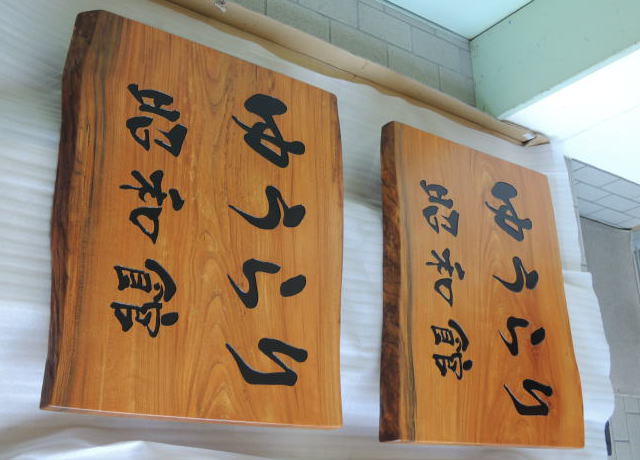 ゆうらり
昭和館
ゆうらり
昭和館